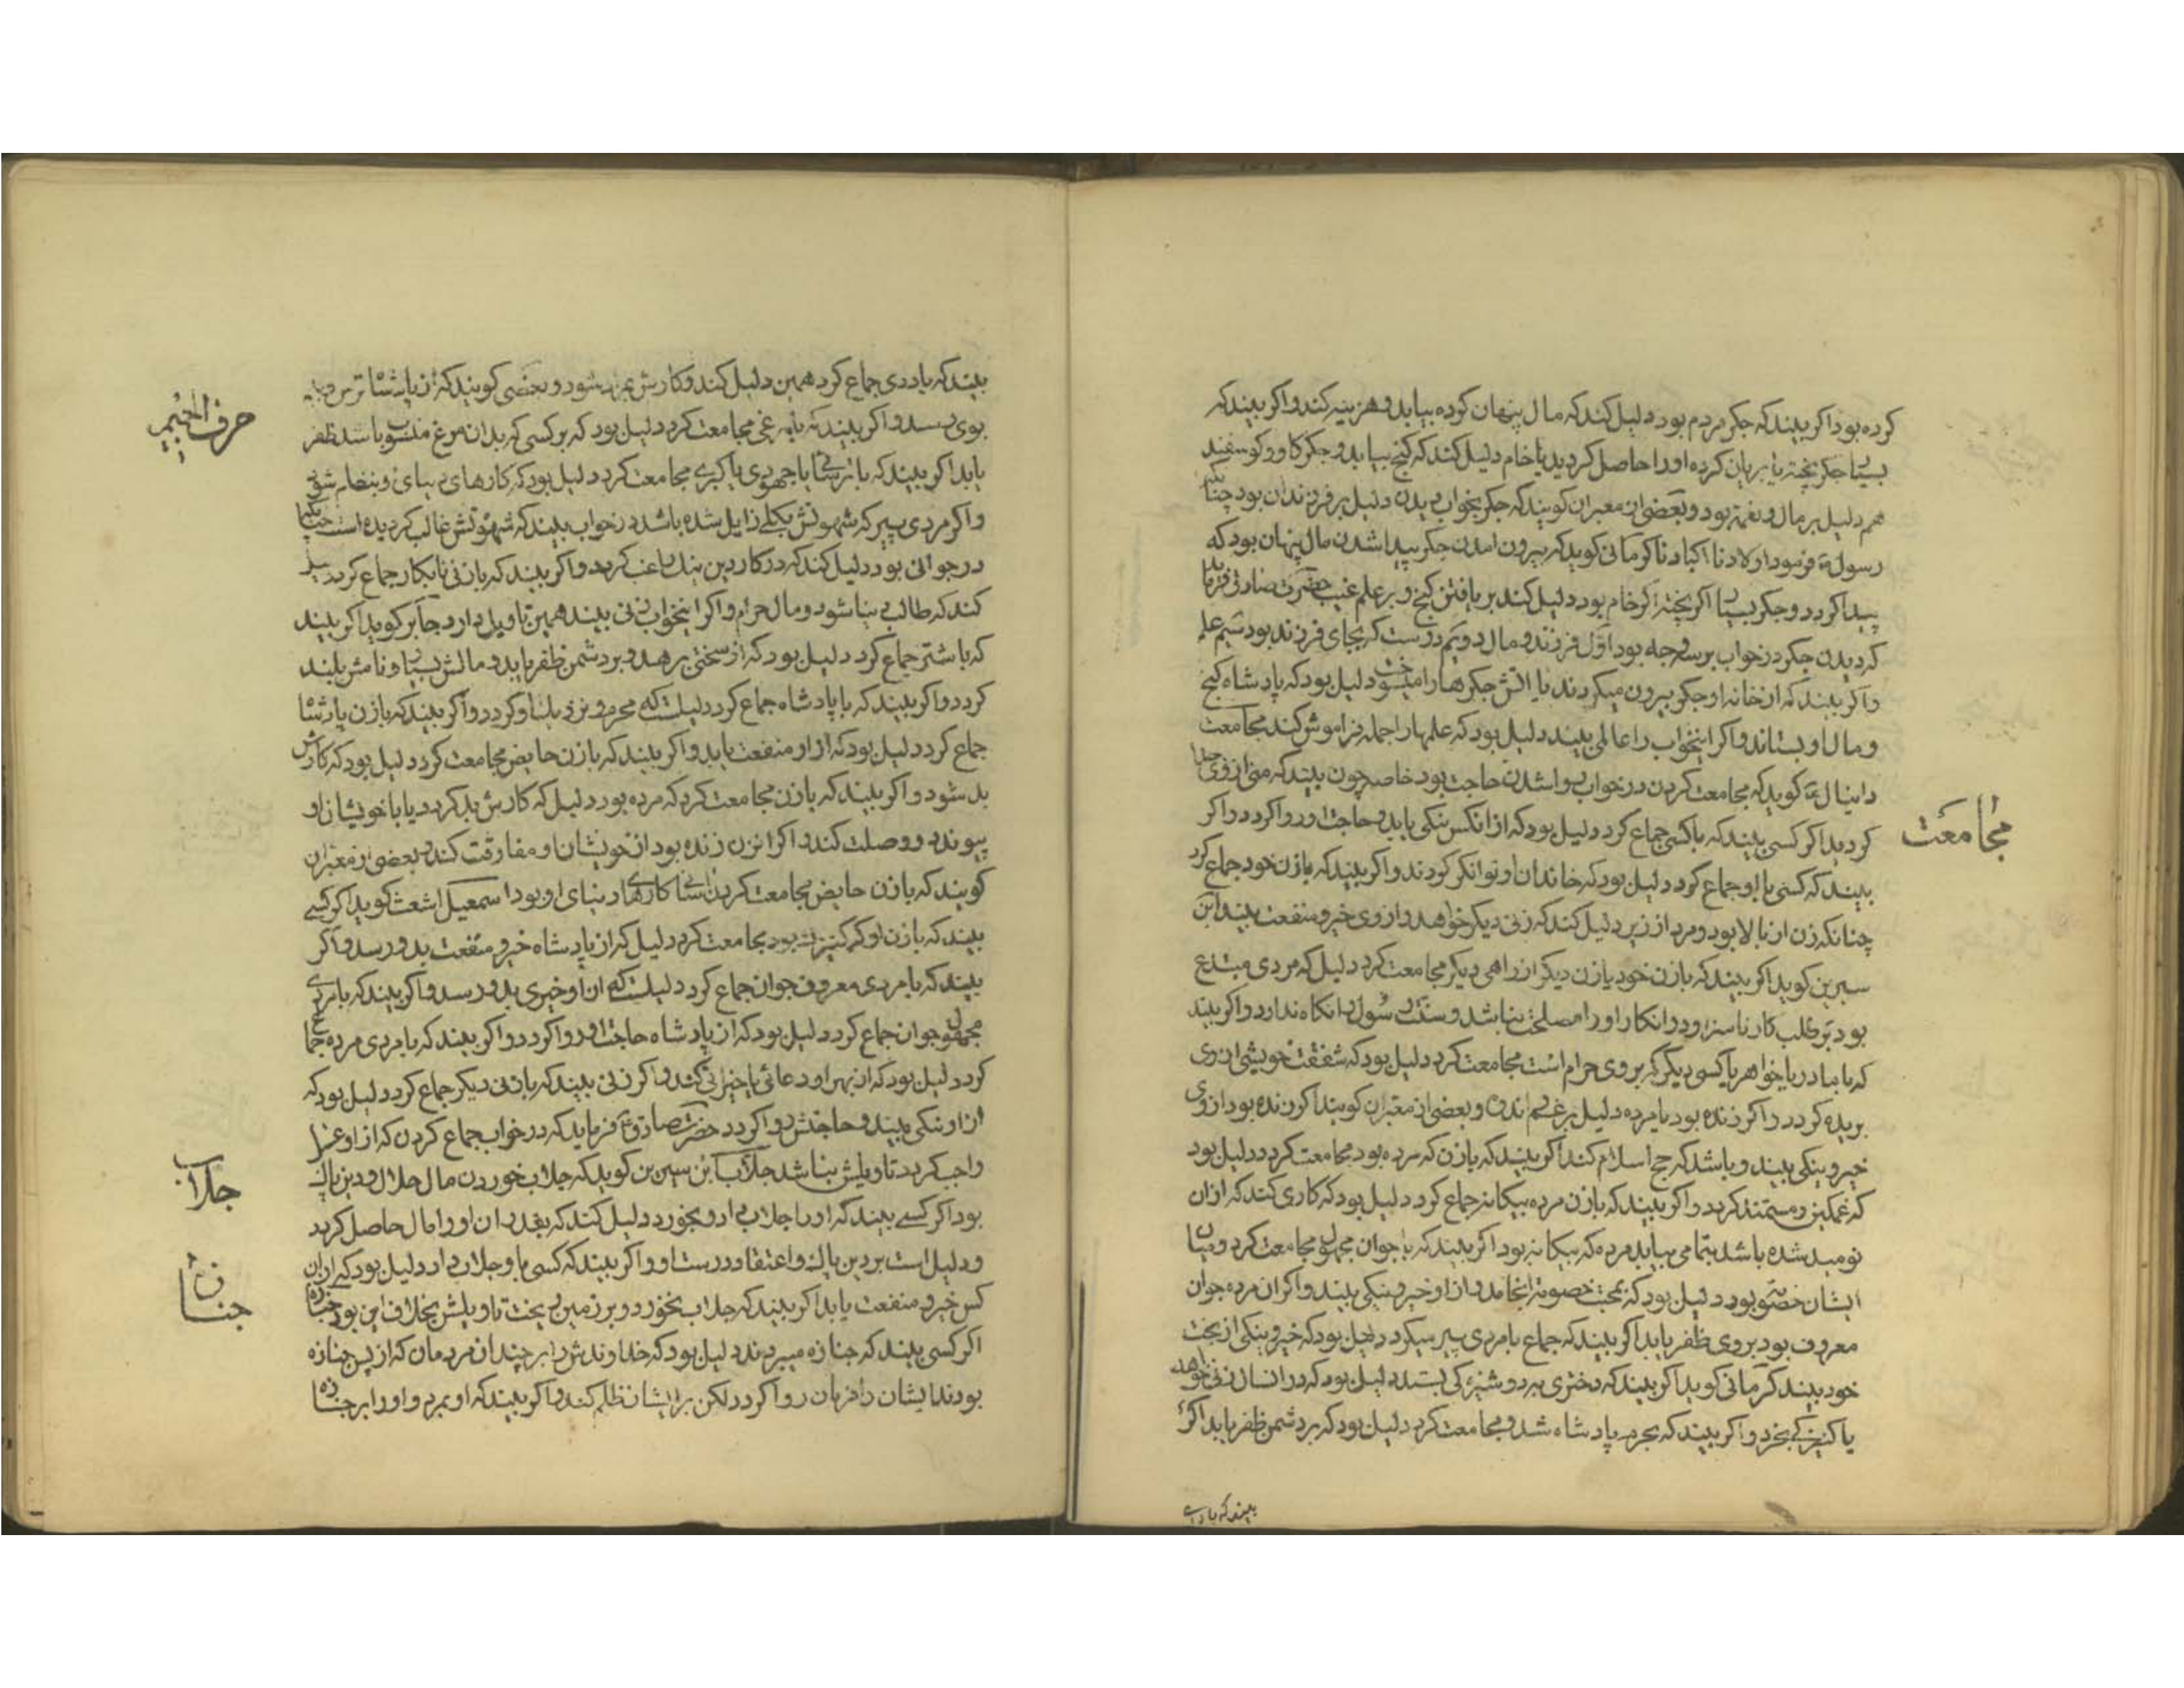 کرده بود اکر بیند که جکر مردم بود دلیل کند که مال پنهان کرده بیابد و هزینه کند و اکر بیند که
بسیار جکر پخته یا بریان کرده او را حاصل کردید یا خام دلیل کند که کنج بیابد و جکر کاو و کوسفند
هم دلیل بر مال و نعمة بود و بعضی از معبران کویند که جکر بخواب دیدن دلیل بر فرزندان بود چنانکه
رسول فرمود اولادنا اکبادنا کرمانی کوید که بیرون امدن جکر پیدا شدن مال پنهان بود که
پیدا کردد و جکر بسیار اکر پخته اکر خام بود دلیل کند بر یافتن کنج و بر علم غیب حضرت صادق فرماید
که دیدن جکر در خواب بر سه وجه بود اول فرزند و مال دویم دوست که بجای فرزند بود سیم علم
و اکر بیند که از خانه او جکر بیرون میکردند یا اتش جکرها را میسوخت دلیل بود که پادشاه کنج
و مال او بستاند و اکر اینخواب را عالمی بیند دلیل بود که علمها را جمله فراموش کند مجامعت
دانیال کوید که مجامعت کردن در خواب روا شدن حاجت بود خاصه چون بیند که منی از وی جدا
کردید اکر کسی بیند که با کسی جماع کرد دلیل بود که از انکس نیکی یابد و حاجت او روا کردد و اکر
مجامعت
بیند که کسی با او جماع کرد دلیل بود که خاندان او توانکر کردند و اکر بیند که با زن خود جماع کرد
چنانکه زن از بالا بود و مرد از زیر دلیل کند که زنی دیکر خواهد و از وی خیر و منفعت بیند ابن
سیرین کوید اکر بیند که با زن خود یا زن دیکر از راهی دیکر مجامعت کرد دلیل که مردی مبتدع
بود بر طلب کار ناسزا و در انکار او را مصلحت نباشد و سنت رسول را نکاه ندارد و اکر بیند
که با مادر یا خواهر یا کسی دیکر که بر وی حرام است مجامعت کرد دلیل بود که شفقت خویشی از وی
بریده کردد و اکر زنده بود یا مرده دلیل بر غم و اندوه و بعضی از معبران کویند اکر زنده بود از وی
خیر و نیکی بیند و باشد که حج اسلام کند اکر بیند که با زن که مرده بود مجامعت کرد دلیل بود
که غمکین و مستمند کردد و اکر بیند که با زن مرده بیکانه جماع کرد دلیل بود که کاری کند که از ان
نومید شده باشد بتمامی بیابد مرده که بیکانه بود اکر بیند که با جوان مجهول مجامعت کرد و میان
ایشان خصومت بود دلیل بود که بحث خصومة انجامد و از او خیر و نیکی بیند و اکر ان مرده جوان
معروف بود بر وی ظفر یابد اکر بیند که جماع با مردی پیر میکرد دلیل بود که خیر و نیکی از بخت
خود بیند کرمانی کوید اکر بیند که دختری به دوشیزکی بستد دلیل بود که در انسال زنی خواهد
یا کنیزکی بخرد و اکر بیند که بحرم پادشاه شد و مجامعت کرد دلیل بود که بر دشمن ظفر یابد اکر
بیند که با
بیند که با ددی جماع کرد همین دلیل کند و کارش شود و بعضی کویند که از پادشاه ترس و
حرف الجیم
بوی رسد و اکر بیند که با مرغی مجامعت کرد دلیل بود که بر کسی که بدان مرغ منسوب باشد ظفر
یابد اکر بیند که با ترسا یا جهودی یا کبری مجامعت کرد دلیل بود که کارهای دنیای وی بنظام شود
و اکر مردی پیر که شهوتش بکلی زایل شده باشد در خواب بیند که شهوتش غالب کردیده است چنانکه
در جوانی بود دلیل کند که در کار دین نیک راغب کردد و اکر بیند که با زنی نابکار جماع کرد دلیل
کند که طالب دنیا شود و مال حرام و اکر اینخواب زنی بیند همین تاویل دارد جابر کوید اکر بیند
که با شتر جماع کرد دلیل بود که از سختی برهد و بر دشمن ظفر یابد و مالش بسیار و نامش بلند
کردد و اکر بیند که با پادشاه جماع کرد دلیلست که محرم و نزدیک او کردد و اکر بیند که با زن پادشاه
جماع کرد دلیل بود که از او منفعت یابد و اکر بیند که با زن حایض مجامعت کرد دلیل بود که کارش
بد شود و اکر بیند که با زن مجامعت کرد که مرده بود دلیل که کارش بد کردد یا با خویشان او
پیوندد و وصلت کند و اکر انزن زنده بود از خویشان او مفارقت کند و بعضی از معبران
کویند که با زن حایض مجامعت کردن کارهای دنیای او بود اسمعیل اشعث کوید اکر کسی
بیند که با زن او که کنیزک بود مجامعت کرد دلیل که از پادشاه خیر و منفعت بدو رسد و اکر
بیند که با مردی معروف جوان جماع کرد دلیلست که از او خیری بدو رسد و اکر بیند که با مردی
مجهول جوان جماع کرد دلیل بود که از پادشاه حاجت او روا کردد و اکر بیند که با مردی مرده جماع
کرد دلیل بود که از بهر او دعائی یا خیراتی کند و اکر زنی بیند که با زنی دیکر جماع کرد دلیل بود که
از او نیکی بیند و حاجتش روا کردد حضرت صادق فرماید که در خواب جماع کردن که از او غسل
واجب کردد تاویلش نباشد جلاب ابن سیرین کوید که جلاب خوردن مال حلال و دین پاک
جلاب
بود اکر کسی بیند که او را جلاب داد و بخورد دلیل کند که بقدر ان او را مال حاصل کردد
و دلیل است بر دین پاک و اعتقاد درست او و اکر بیند که کسی با او جلاب داد دلیل بود که از ان
کس خیر و منفعت یابد اکر بیند که جلاب نخورد و بر زمین ریخت تاویلش بخلاف این بود جنازه
جنازه
اکر کسی بیند که جنازه میبردند دلیل بود که خداوندش را بر چندان مردمان که از پس جنازه
بودند ایشان را فرمان روا کردد لکن بر ایشان ظلم کند و اکر بیند که او بمرد و او را بر جنازه